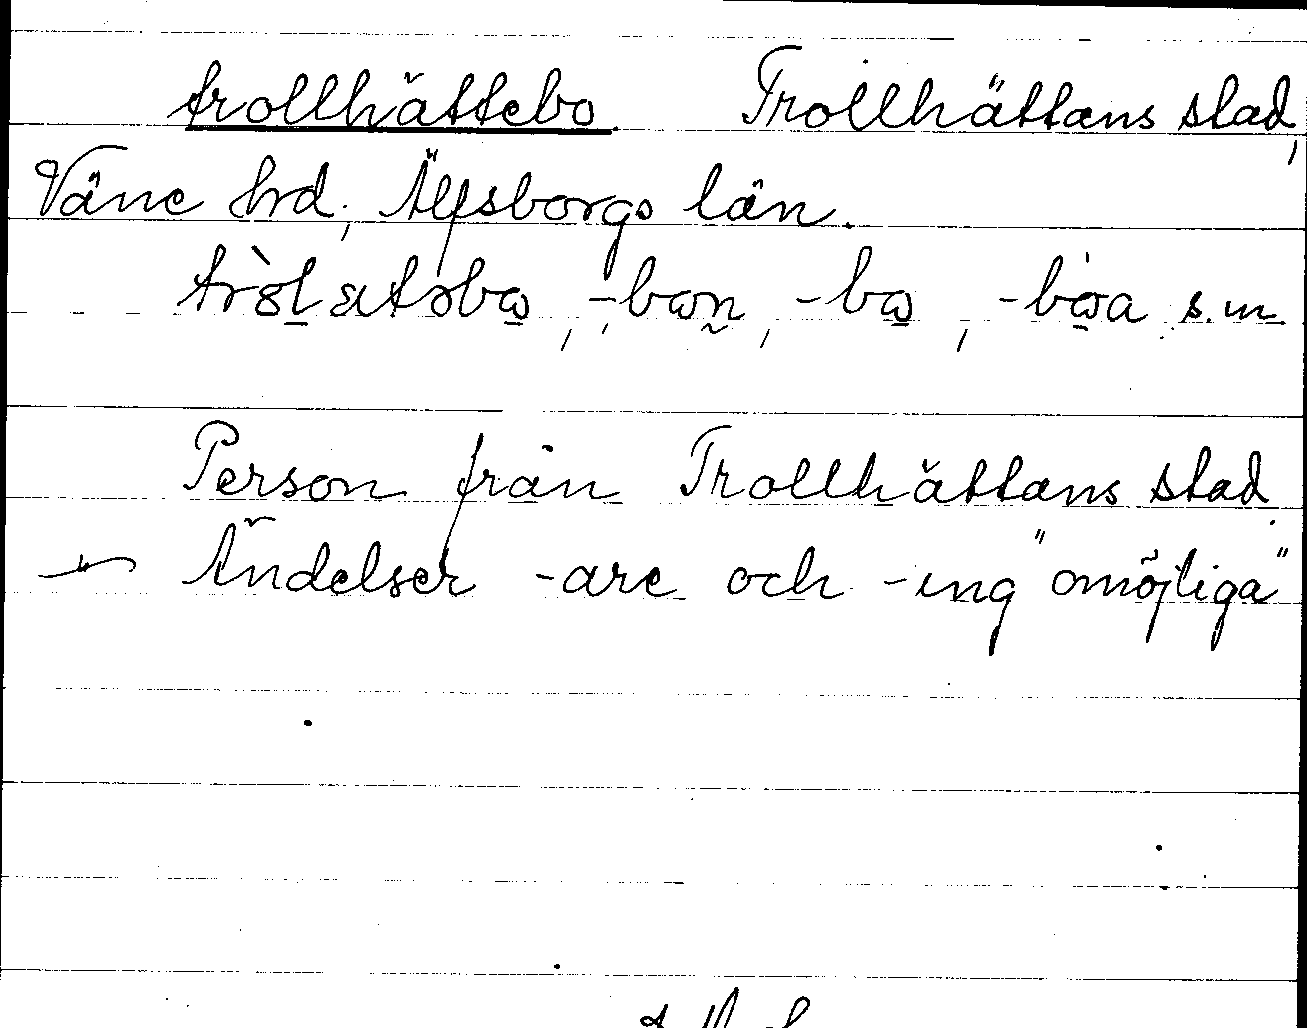 trollhättebo Trollhättans stad,
Väne hrd, Älfsborgs län.
-bo̱n̰, -bo̱, -bo̱a s.m
Person från Trollhättans stad.
Ändelser -are och -ing "omöjliga"